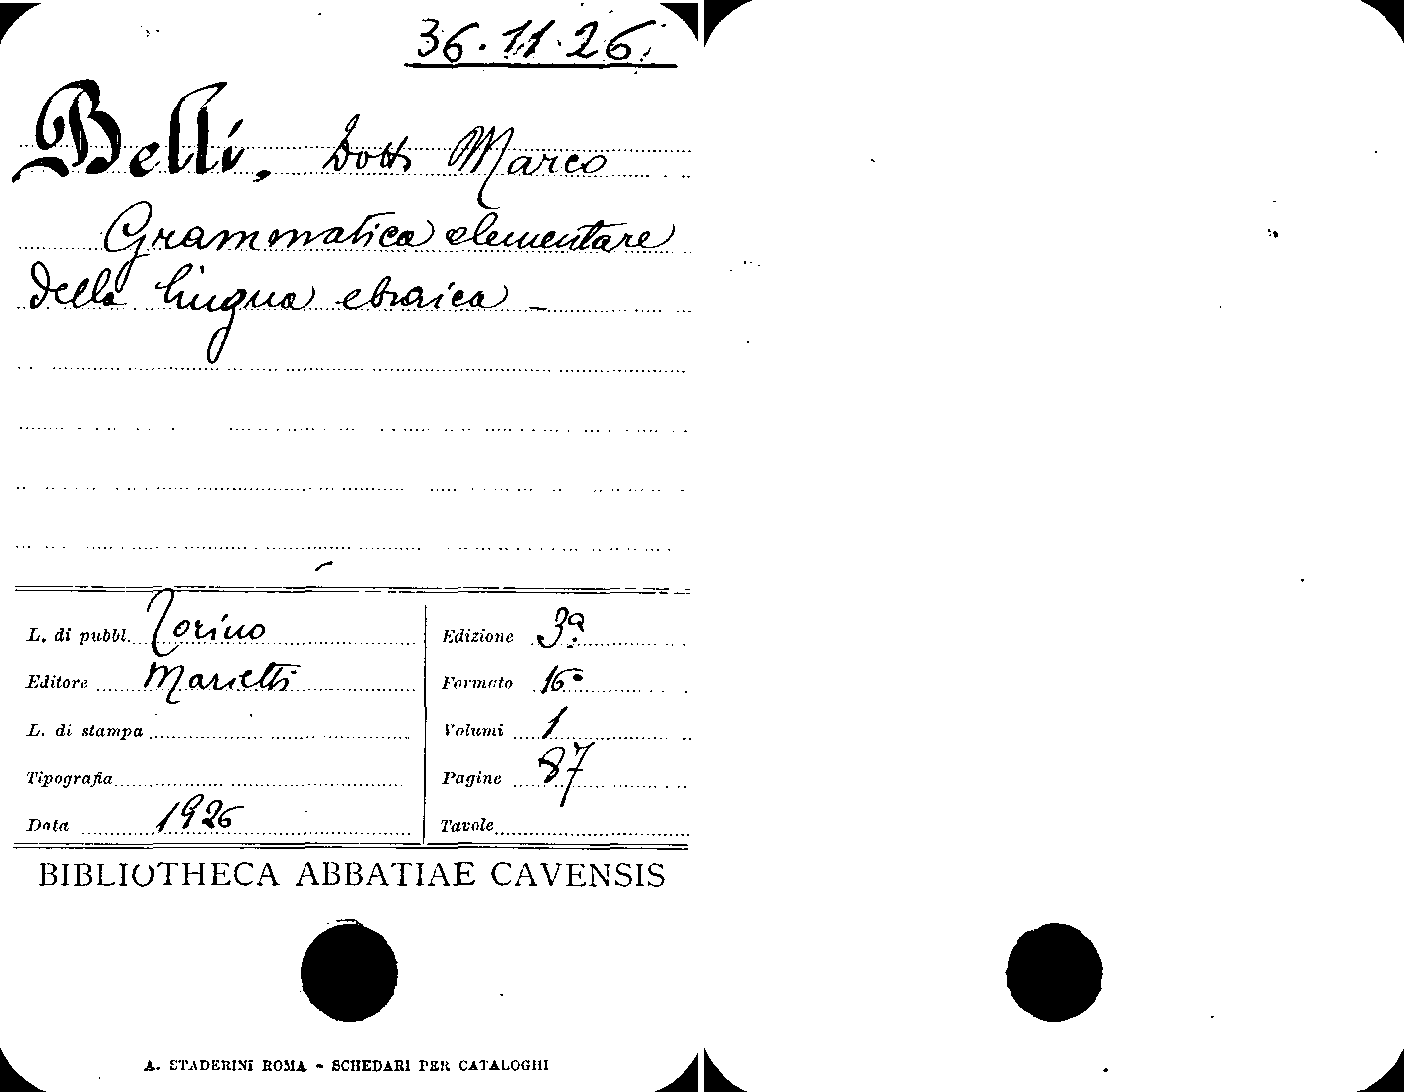 36.11.26.
Belli, Dott. Marco
Grammatica elementare
della lingua ebraica –
L. di pubbl. Torino
Editore Marietti
L. di stampa
Tipografia
Data 1926
Edizione 3ª
Formato 16°
Volumi 1
Pagine 87
Tavole
BIBLIOTHECA ABBATIAE CAVENSIS
A. STADERINI ROMA - SCHEDARI PER CATALOGHI